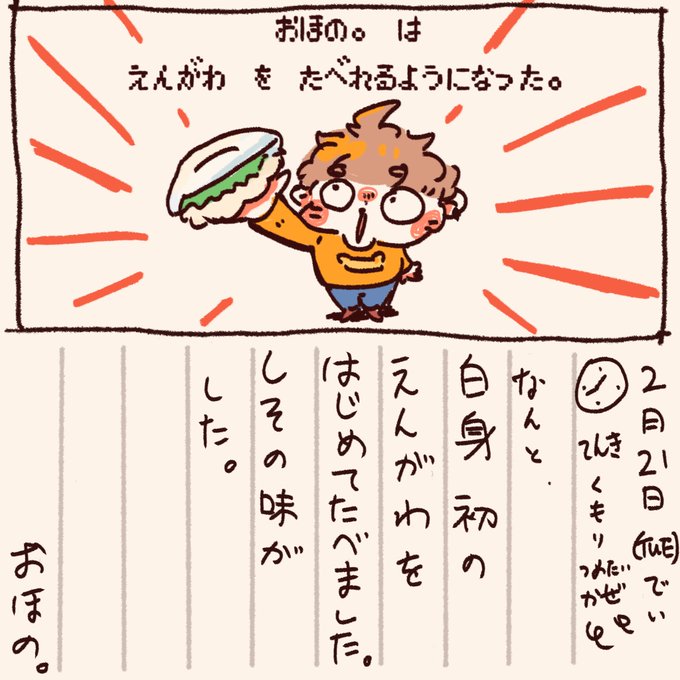 おほの。 は
えんがわ を たべれるようになった。
2月21日(TUE)でい
てんき くもり つめたいかぜ
なんと、
白身 初の
えんがわを
はじめてたべました。
しその味が
した。
おほの。